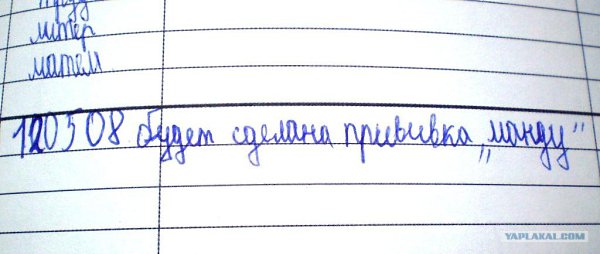 труд
литер
матем
120508 будет сделана прививка „манду"
YAPLAKAL.COM